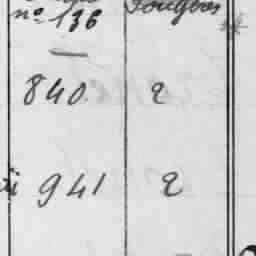 nº 136 Fougères
840 2
941 2